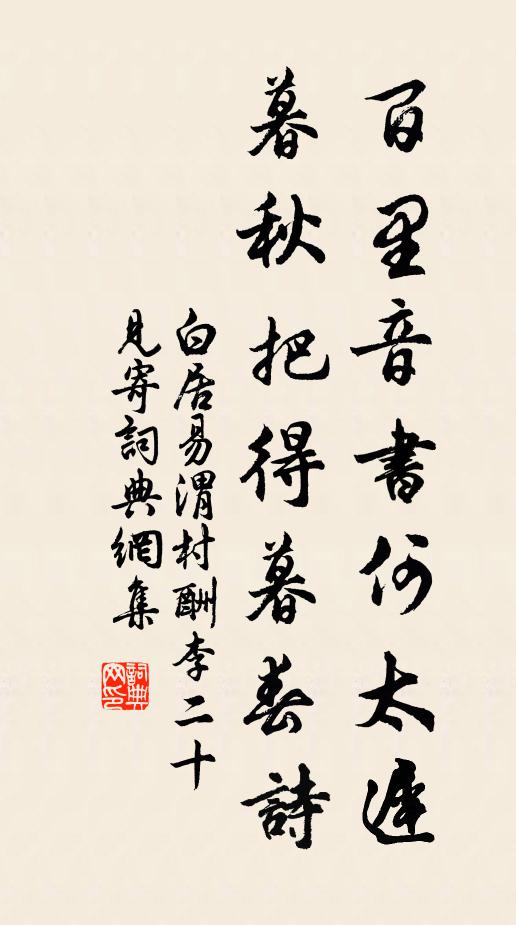 百里音書何太遲
暮秋把得暮春詩
白居易渭村酬李二十
見寄詞典網集
詞典網印